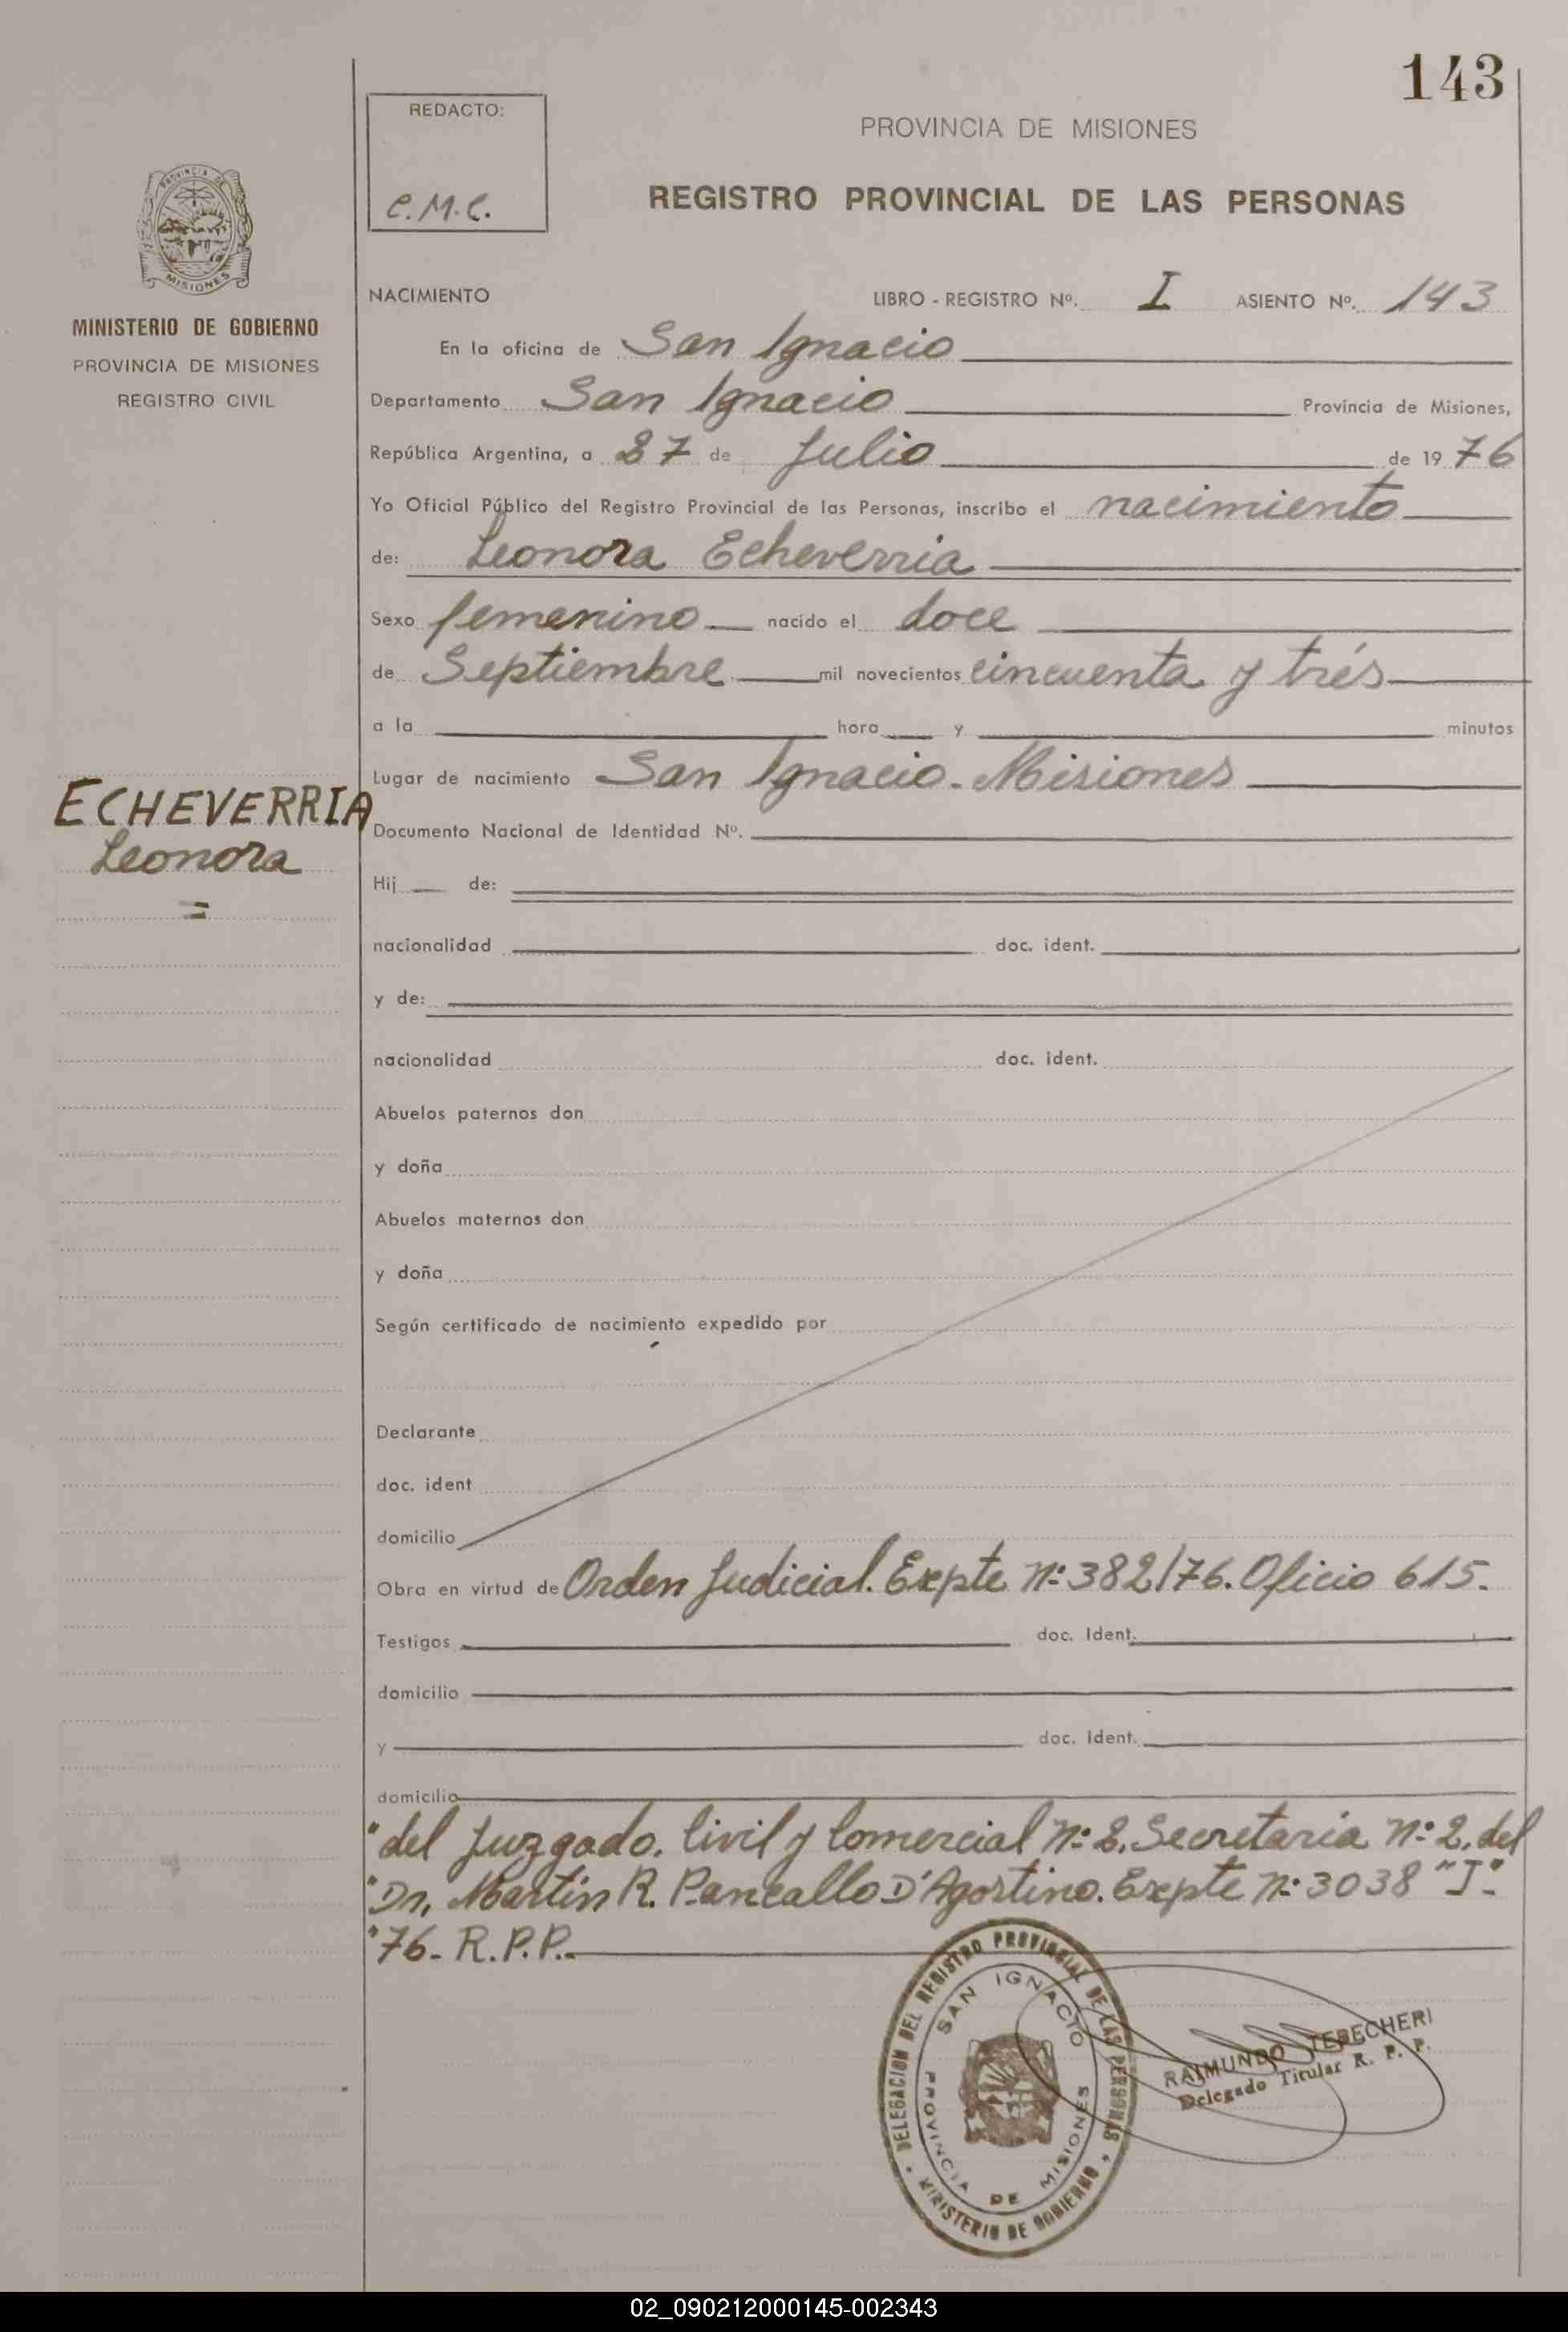 143
REDACTO:
C.M.C.
PROVINCIA DE MISIONES
REGISTRO PROVINCIAL DE LAS PERSONAS
PROVINCIA DE
MISIONES
MINISTERIO DE GOBIERNO
PROVINCIA DE MISIONES
REGISTRO CIVIL
NACIMIENTO LIBRO - REGISTRO Nº. I ASIENTO Nº. 143
En la oficina de San Ignacio
Departamento San Ignacio Provincia de Misiones,
República Argentina, a 27 de Julio de 19 76
Yo Oficial Público del Registro Provincial de las Personas, inscribo el nacimiento
de: Leonora Echeverria
Sexo femenino nacido el doce
de Septiembre mil novecientos cincuenta y trés
a la hora y minutos
Lugar de nacimiento San Ignacio - Misiones
ECHEVERRIA
Leonora
=
Documento Nacional de Identidad Nº.
Hij de:
nacionalidad doc. ident.
y de:
nacionalidad doc. ident.
Abuelos paternos don
y doña
Abuelos maternos don
y doña
Según certificado de nacimiento expedido por
Declarante
doc. ident
domicilio
Obra en virtud de Orden Judicial. Expte nº 382/76. Oficio 615.
Testigos doc. Ident.
domicilio
y doc. Ident.
domicilio
"del Juzgado. Civil y Comercial Nº 2. Secretaria nº 2. del
"Dr. Martín R. Pancallo D'Agostino. Expte nº 3038 "J"
"76- R.P.P.
DELEGACION DEL REGISTRO PROVINCIAL DE LAS PERSONAS
MINISTERIO DE GOBIERNO
SAN IGNACIO
PROVINCIA DE MISIONES
RAIMUNDO TEBECHERI
Delegado Titular R. P. P.
02_090212000145-002343